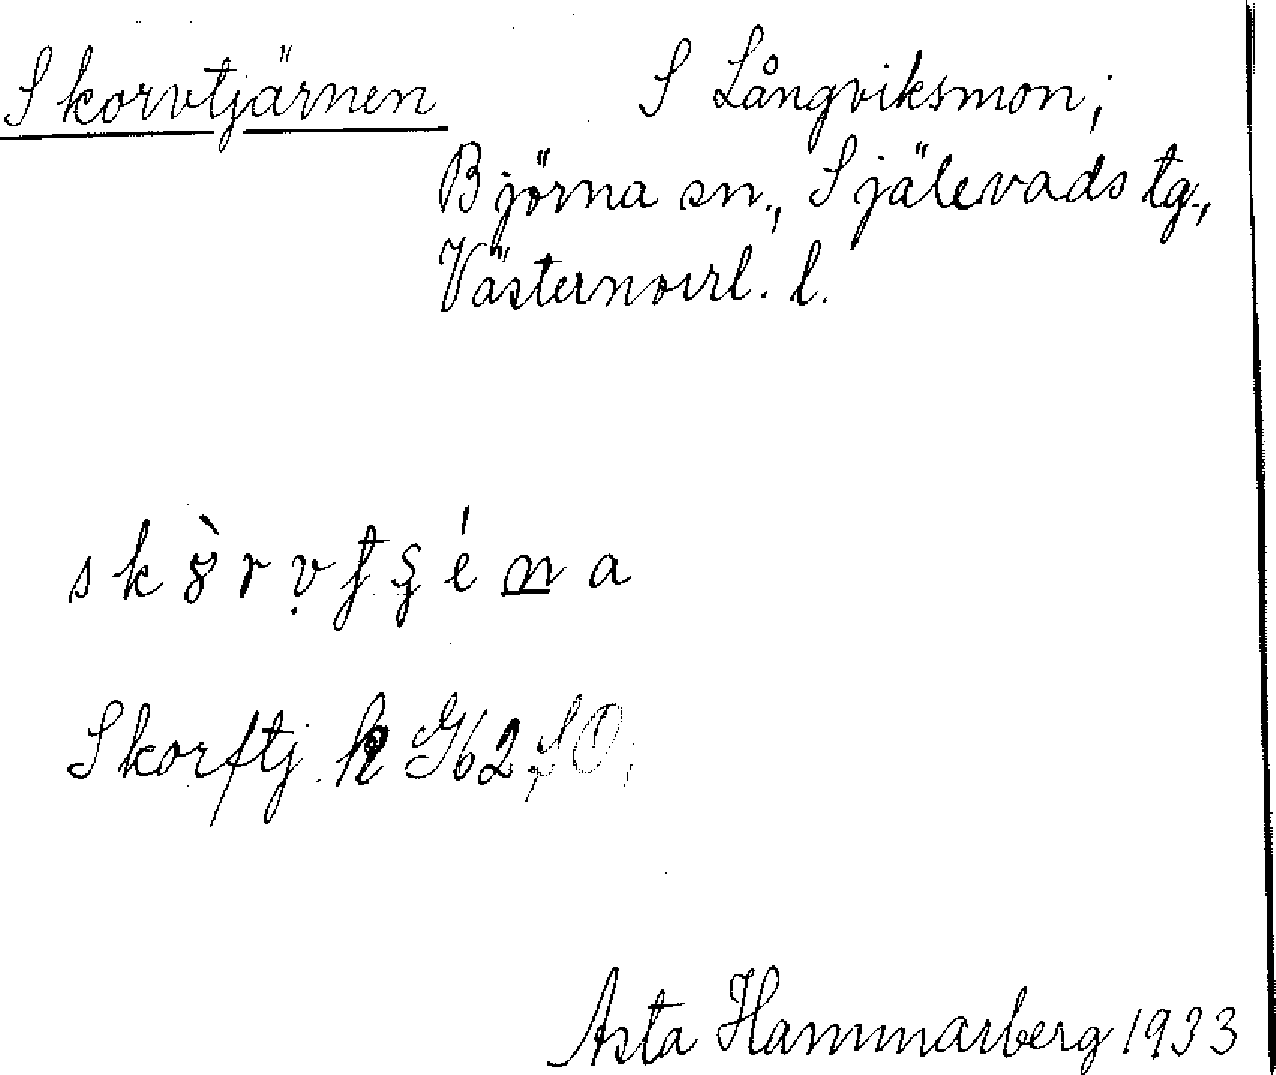 Skorvtjärnen S Långviksmon;
Björna sn., Själevads tg.,
Västernorrl. l.
Skorftj. k G62 SO,
Asta Hammarberg 1933